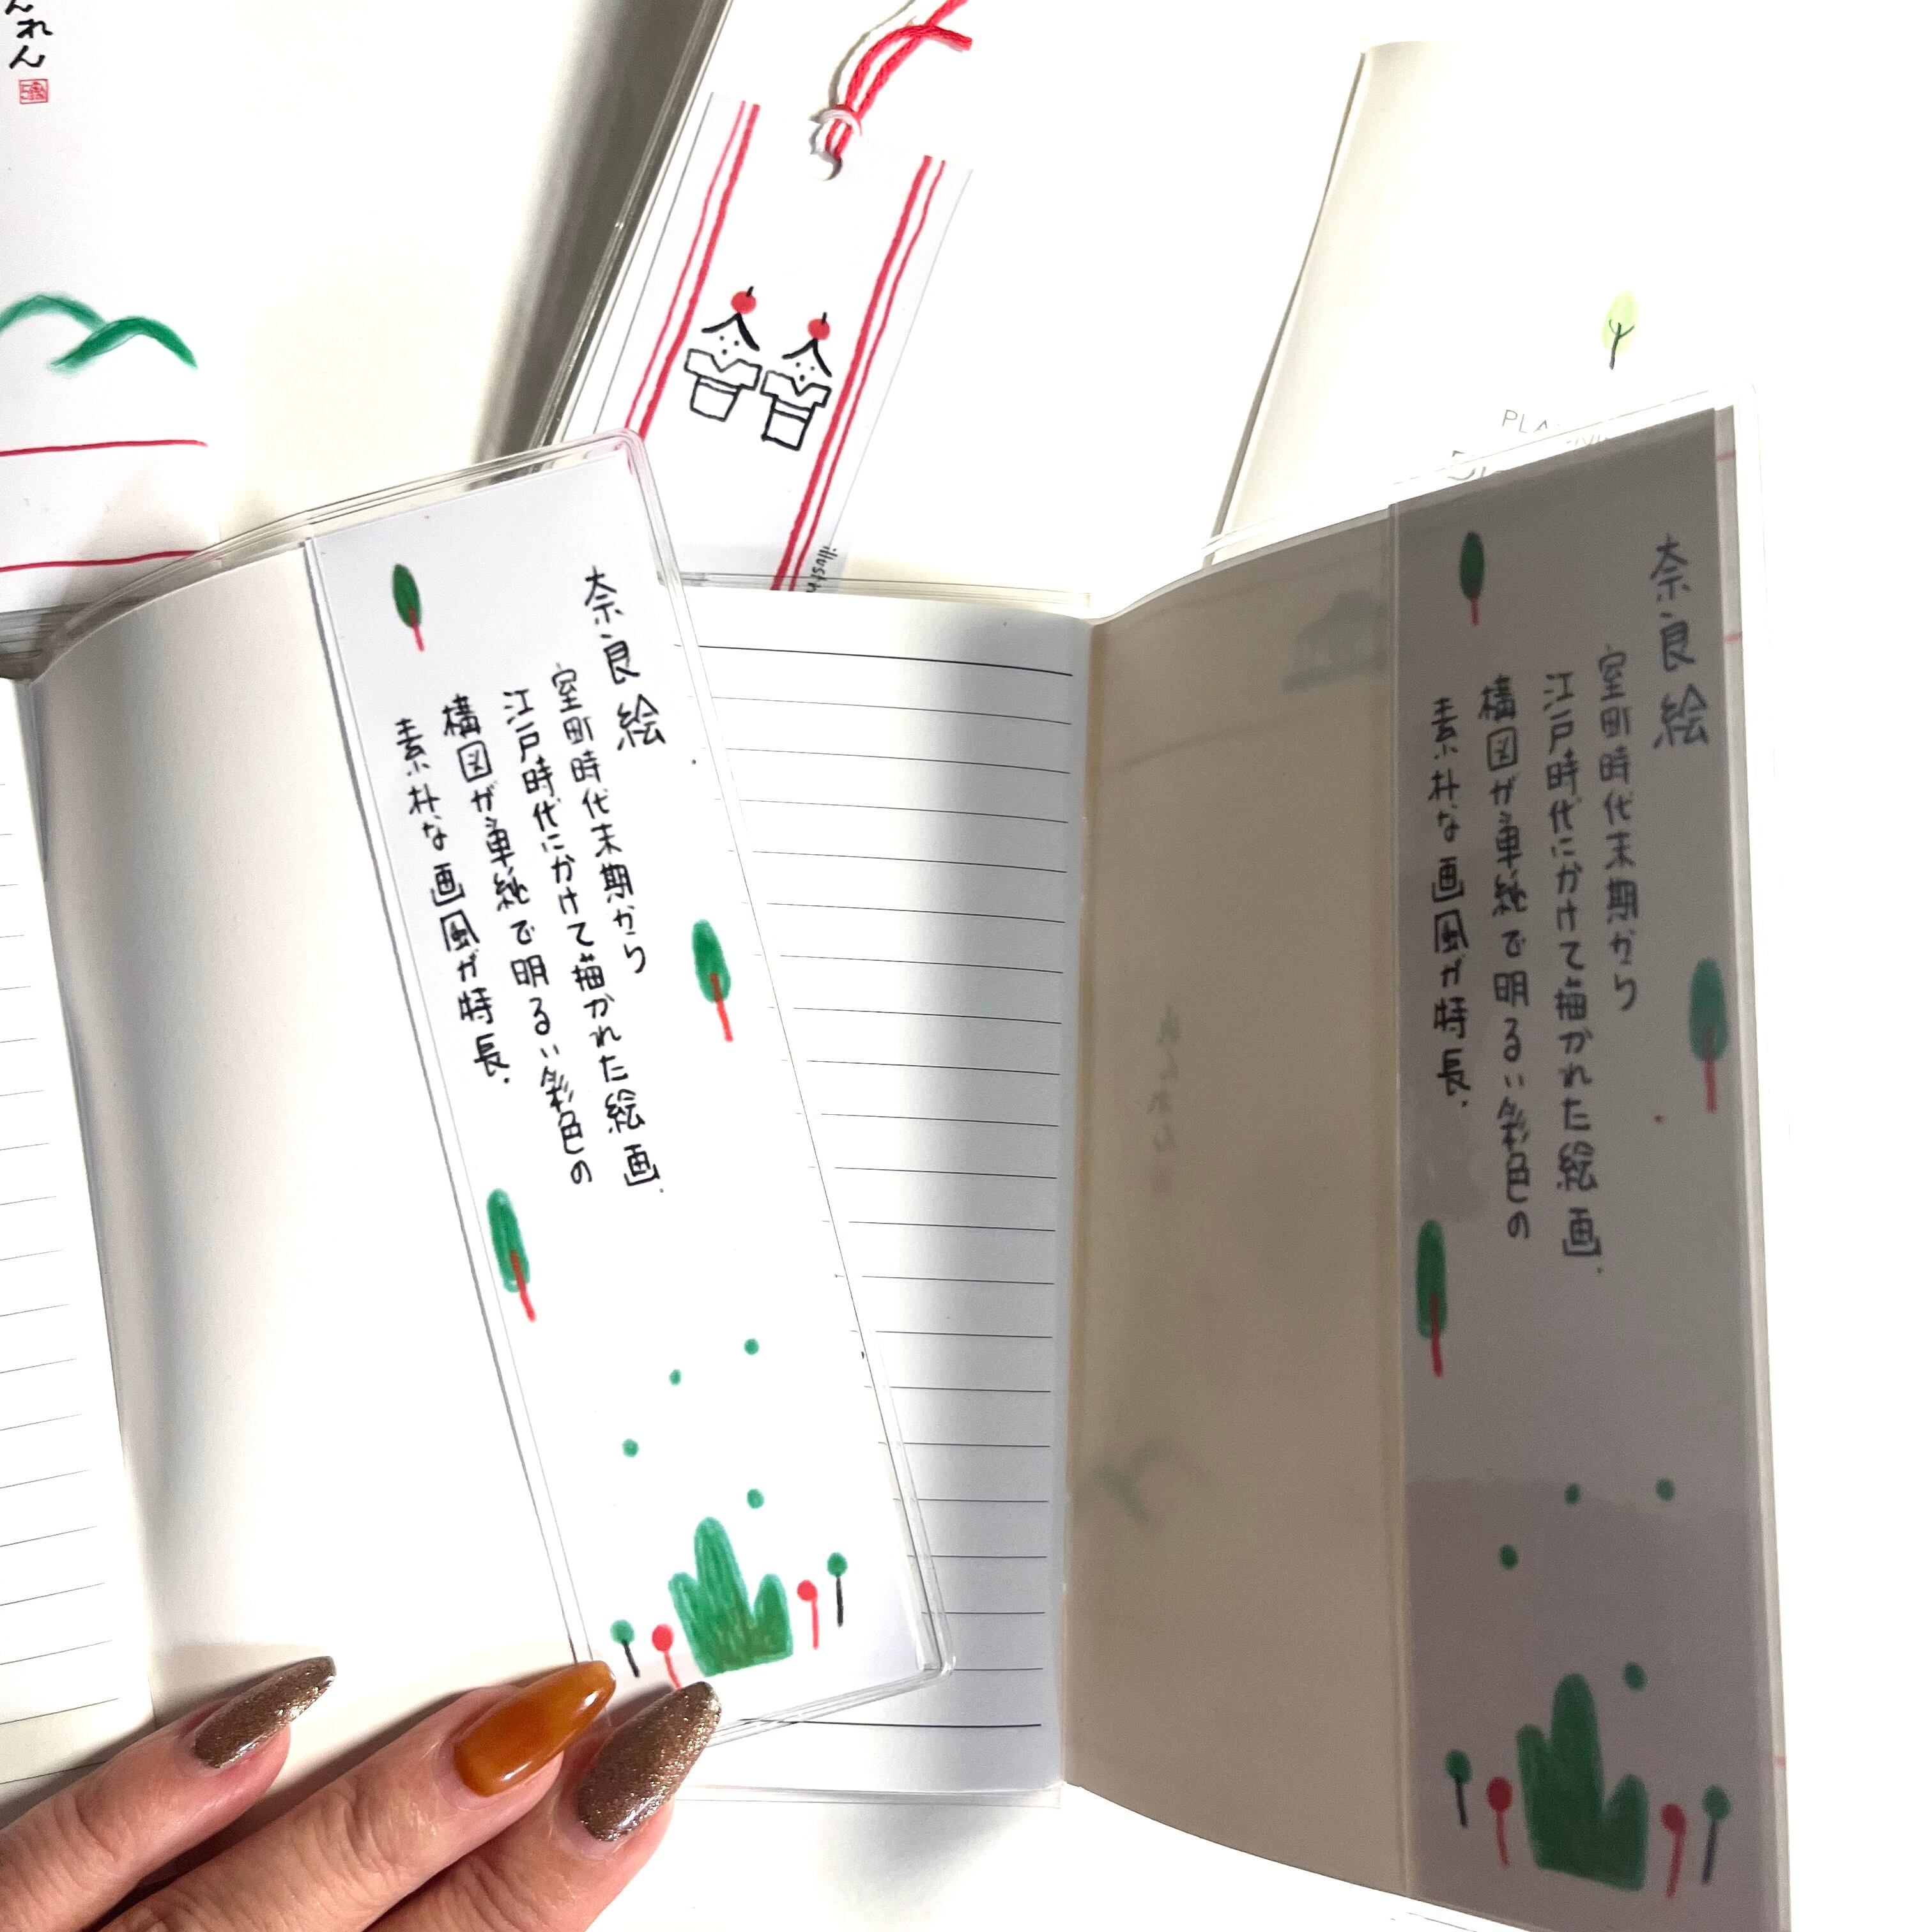 んれん
PLA
奈良絵
室町時代末期から
江戸時代にかけて描かれた絵画.
構図が単純で明るい彩色の
素朴な画風が特長.
奈良絵
室町時代末期から
江戸時代にかけて描かれた絵画.
構図が単純で明るい彩色の
素朴な画風が特長.